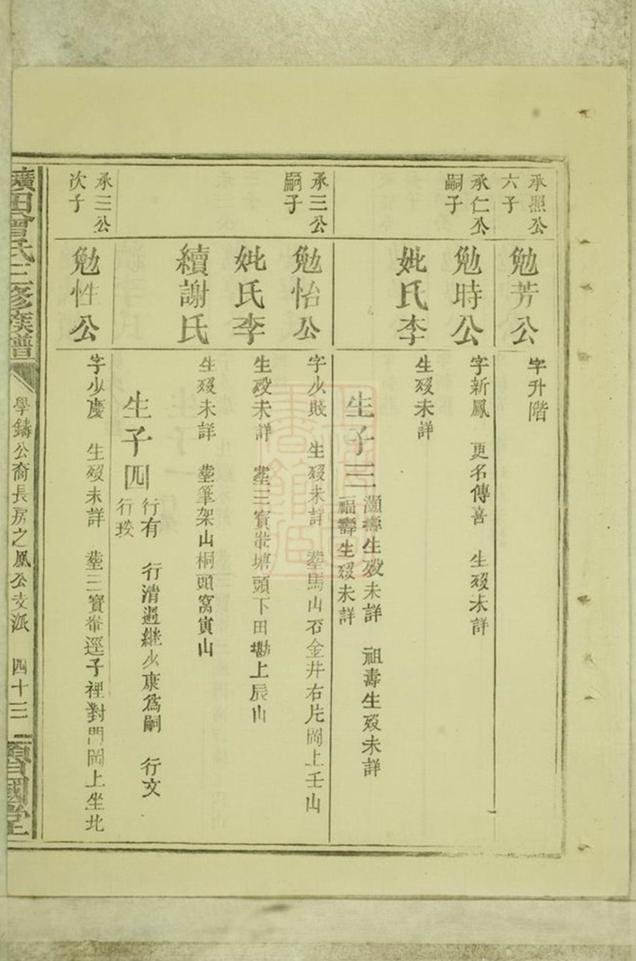 承照公
六子
勉芳公
字升階
承仁公
嗣子
勉時公
字新鳳 更名傳喜 生歿未詳
妣氏李
生歿未詳
生子三
灝壽生歿未詳 祖壽生歿未詳
福壽生歿未詳
承三公
嗣子
勉怡公
字少陔 生歿未詳 塋馬山石金井右片岡上壬山
妣氏李
生歿未詳 塋三寶 塘頭下田墈上辰山
續謝氏
生歿未詳 塋筆架山桐頭窩寅山
生子四
行有 行清過繼少康爲嗣 行文
行㻏
承三公
次子
勉性公
字少慶 生歿未詳 塋三寶 逕子裡對門岡上坐北
田曾氏三修族譜
學鑄公裔長房之鳳公支派 四十三